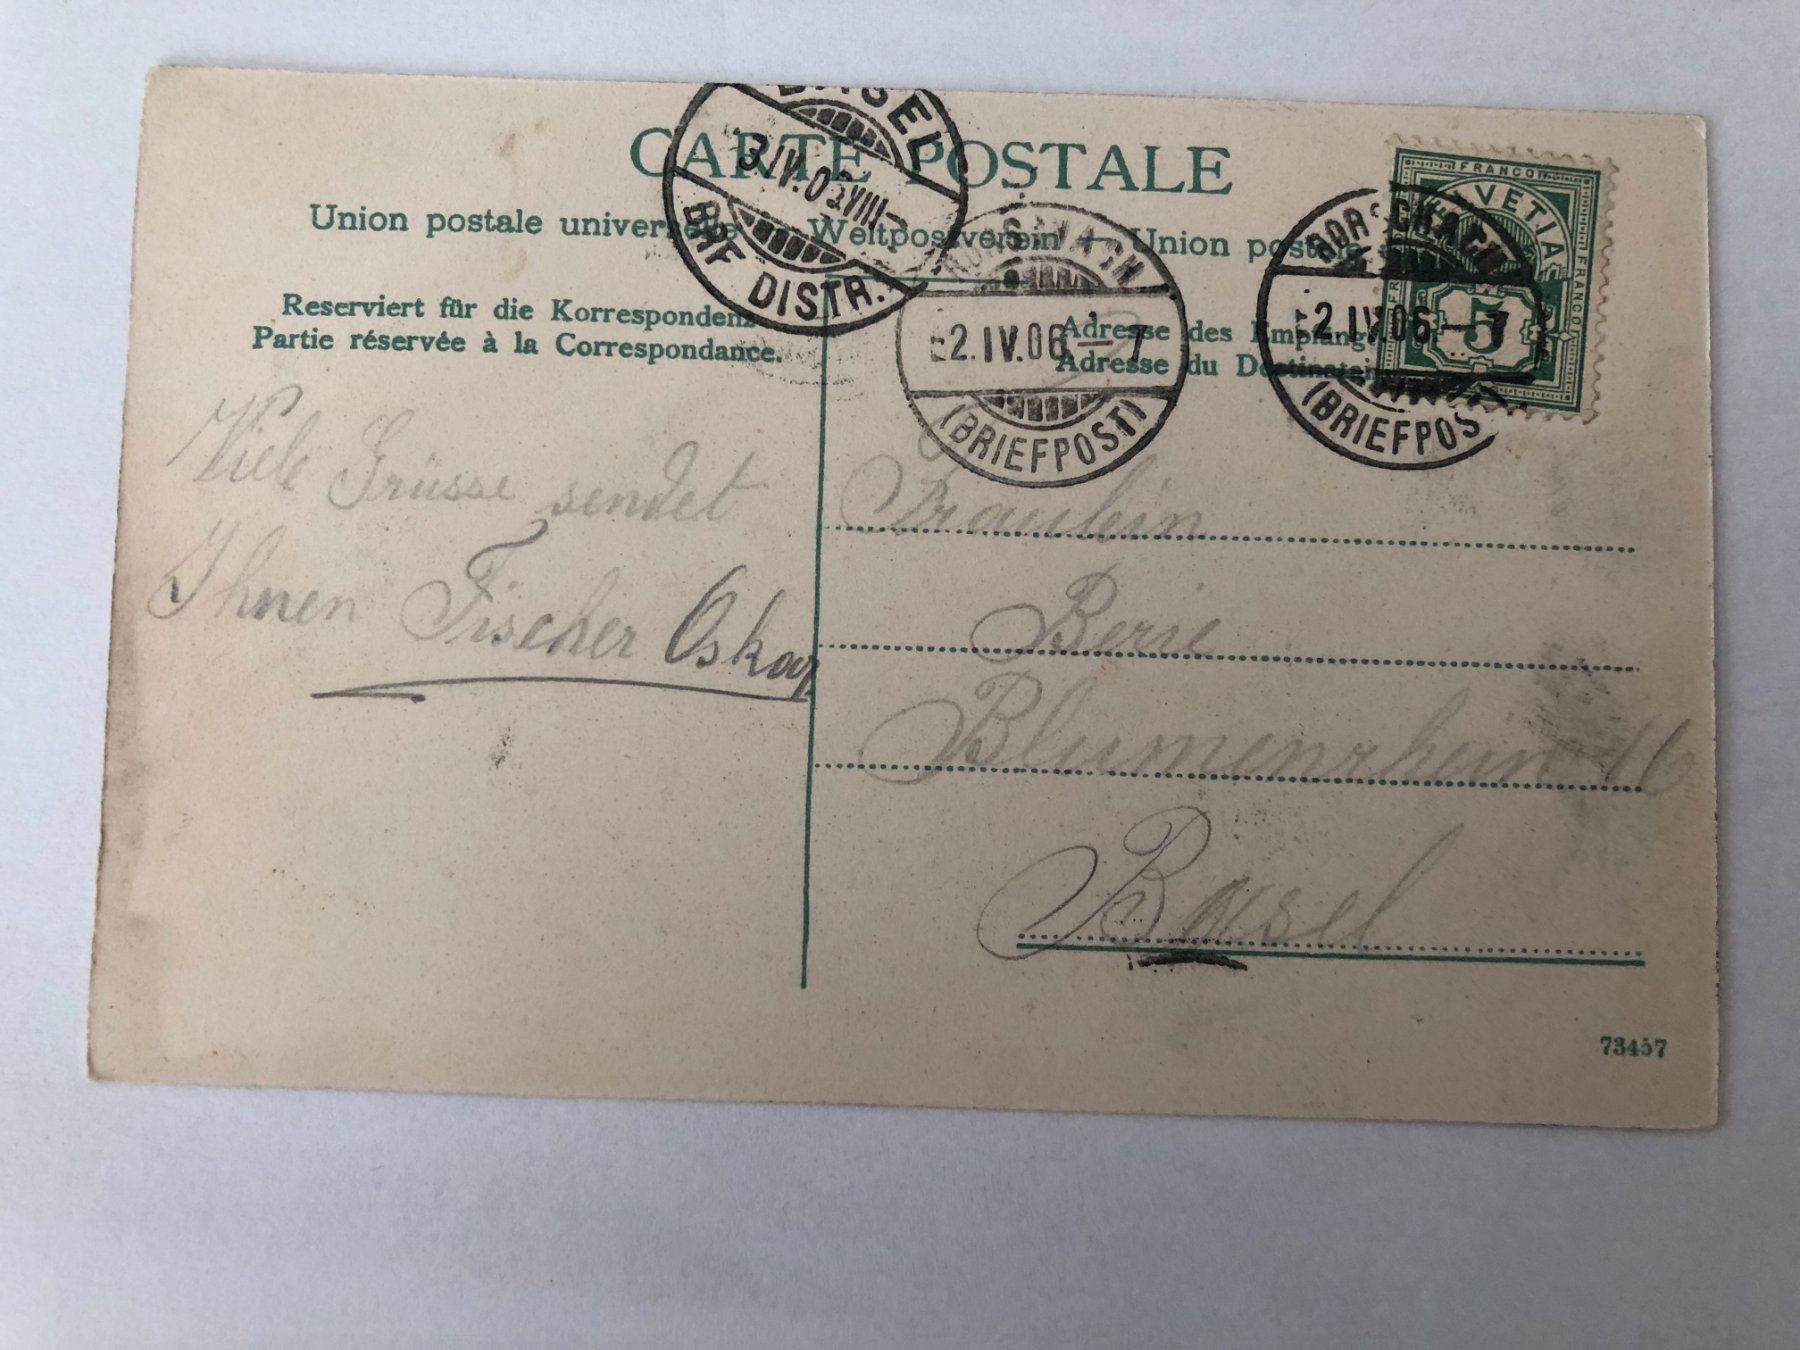 CARTE POSTALE
Union postale universelle — Weltpostverein — Union postale
Reserviert für die Korrespondenz
Partie réservée à la Correspondance.
Adresse des Empfäng
Adresse du Destinatai
BASEL
3.IV.06.VIII–
BRF DISTR.
RORSCHACH
–2.IV.06.–7
(BRIEFPOST)
RORSCHACH
–2.IV.06.–7
(BRIEFPOST)
FRANCO
HELVETIA
FRANCO
5
Viele Grüsse sendet
Ihnen Fischer Oskar
Fräulein
Berie
Blumenrhein 16
Basel
73457